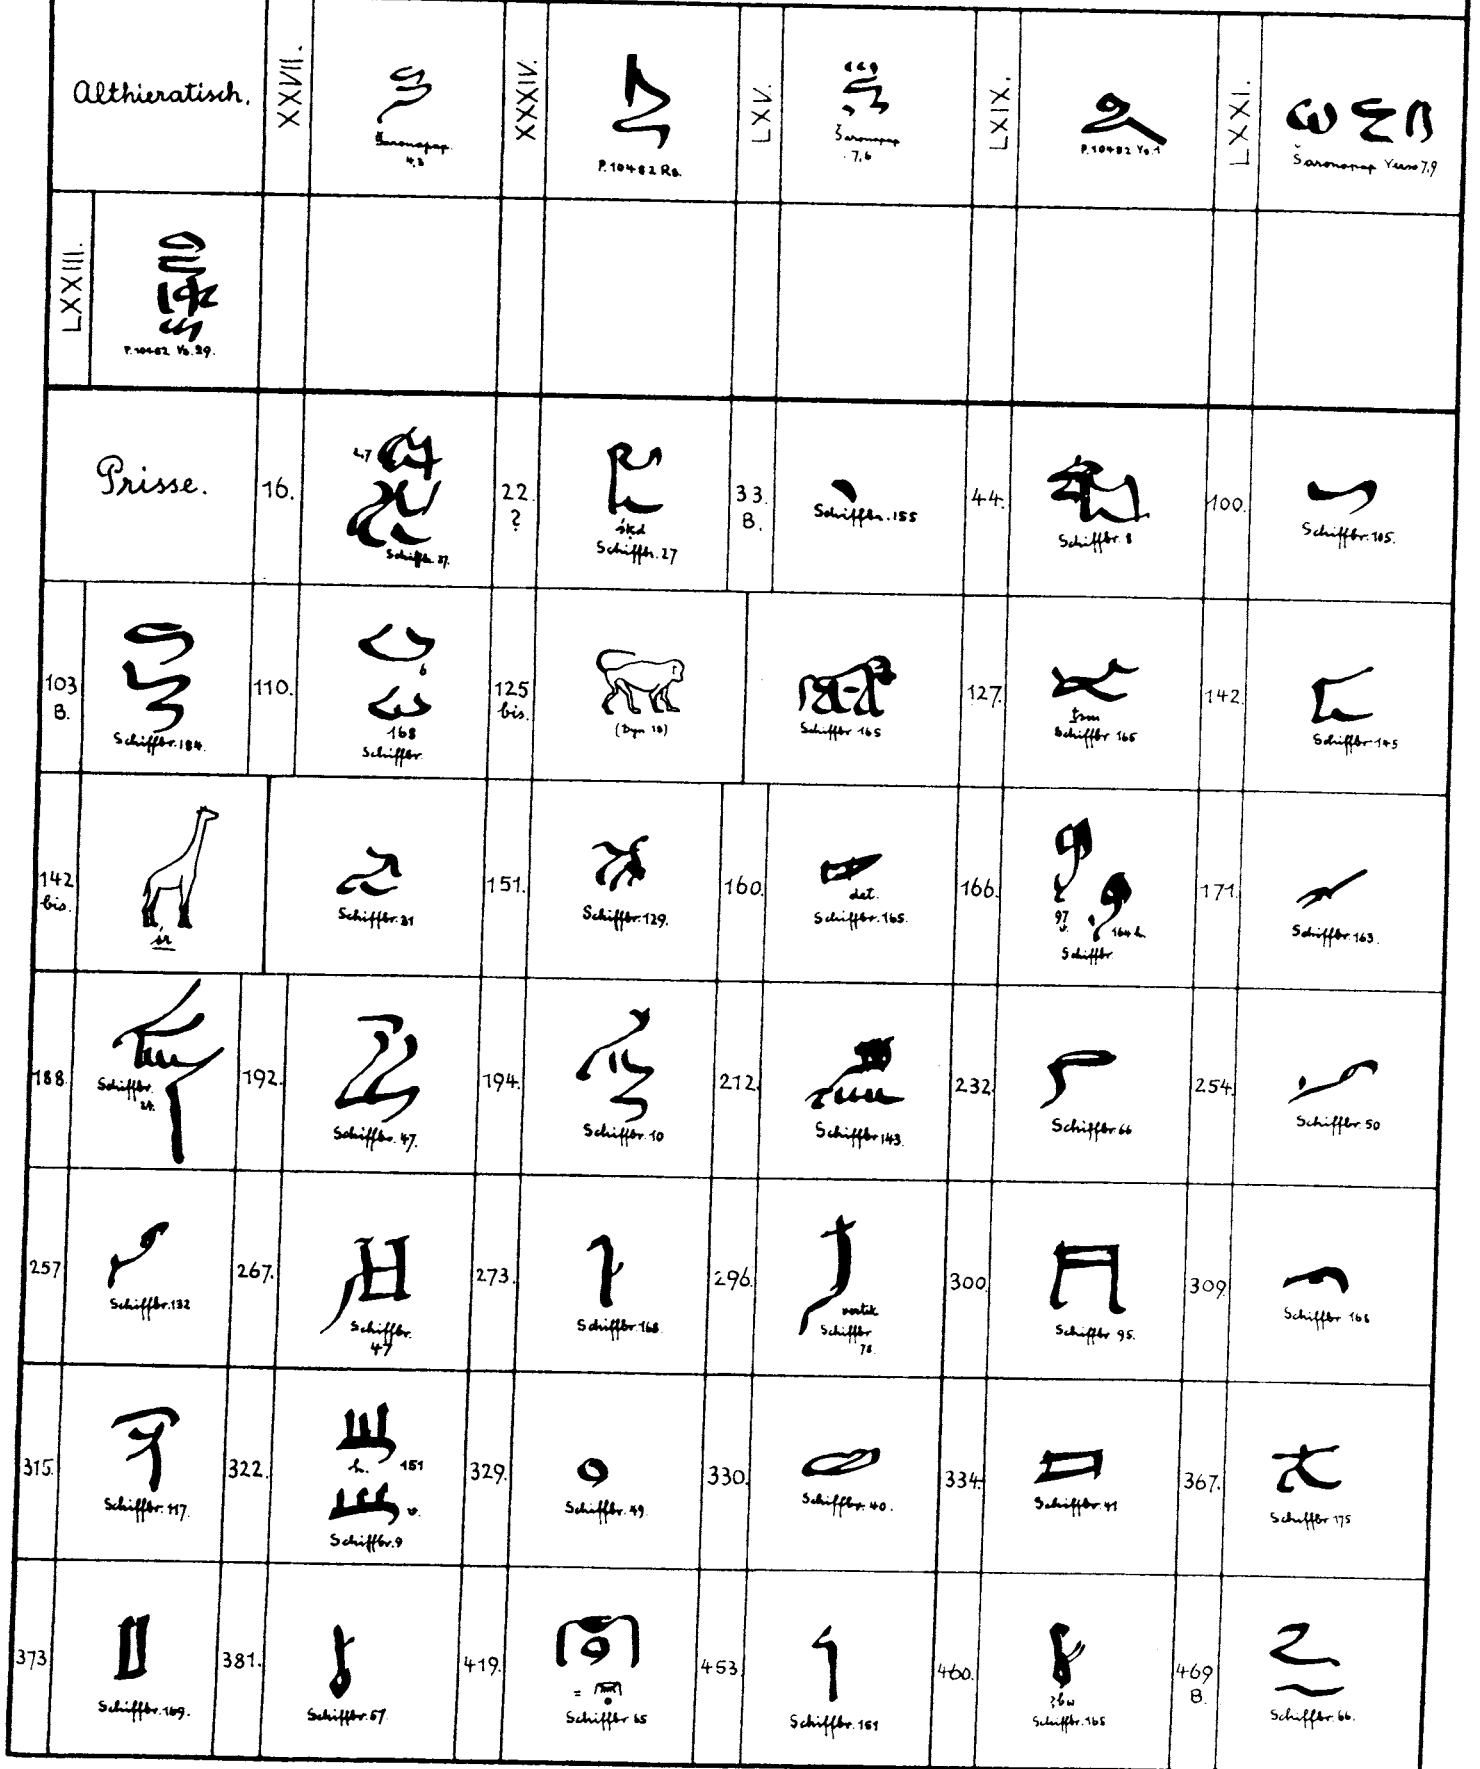 Althieratisch.
XXVII.
4,3
XXXIV.
P. 10482 Rs.
LXV.
7,6
LXIX.
P. 10482 Vs. 1
LXXI.
Verso 7,9
LXXIII.
P. 10482 Vs. 29.
Prisse.
16.
2,7
Schiffbr. 37.
22.
?
śḳd
Schiffbr. 27
33.
B.
Schiffbr. 155
44.
Schiffbr. 8
100.
Schiffbr. 105.
103
B.
Schiffbr. 184.
110.
6
168
Schiffbr.
125
bis.
(Dyn 18)
Schiffbr 165
127.
ṯsm
Schiffbr 165
142.
Schiffbr 145
142
bis.
śr
Schiffbr. 31
151.
Schiffbr. 129.
160.
det.
Schiffbr. 165.
166.
97
v.
164 h.
Schiffbr
171.
Schiffbr. 163.
188.
Schiffbr.
24.
192.
Schiffbr. 47.
194.
Schiffbr. 10
212.
Schiffbr 143.
232.
Schiffbr 66
254.
Schiffbr. 50
257
Schiffbr. 132
267.
Schiffbr.
47
273.
Schiffbr. 168.
296.
vertik
Schiffbr
78.
300.
Schiffbr 95.
309.
Schiffbr 166
315.
Schiffbr. 117.
322.
h. 151
v.
Schiffbr. 9
329.
Schiffbr. 49.
330.
Schiffbr. 40.
334.
Schiffbr. 41
367.
Schiffbr 175
373
Schiffbr. 169.
381.
Schiffbr. 57
419.
=
Schiffbr 65
453.
Schiffbr. 151
460.
ꜣbw
Schiffbr. 165
469
B.
Schiffbr. 66.